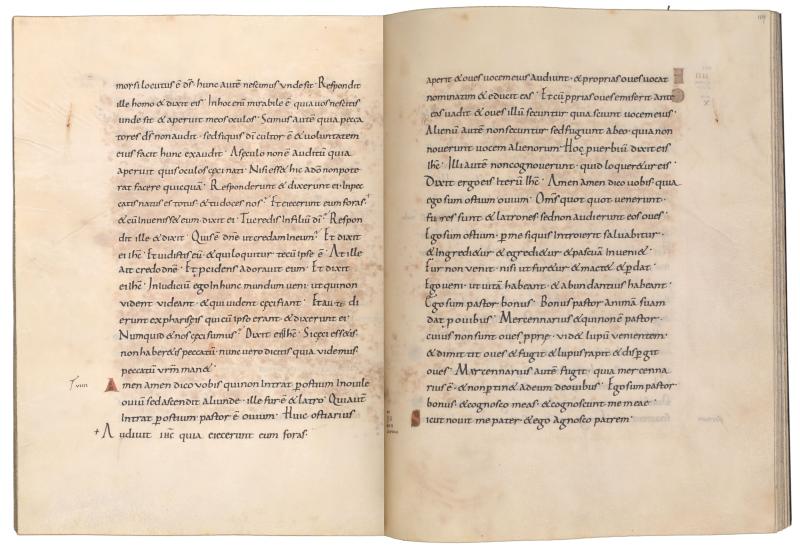 morsi locutus ē dś. hunc autē nescimus unde sit. Respondit
ille homo & dixit eis. In hoc enī mirabile ē quia vos nescitis
unde sit & aperuit meos oculos. Scimus autē quia pecca
tores dś non audit. sed siquis dī cultor ē & voluntatem
eius facit hunc exaudit. A seculo non ē auditū quia
aperuit quis oculos ceci nati. Nisi ess& hic adō non pote
rat facere quicquā. Responderunt & dixerunt ei. In pec
catis natus es totus & tu doces nos? Et eiecerunt eum foras.+
& cū inveniss& eum. dixit ei. Tu credis in filiū dī? Respon
dit ille & dixit. Quis ē dnē ut credam in eum? Et dixit
ei ihc. Et vidisti eū & qui loquitur tecū ipse ē. At ille
ait credo dnē. Et procidens adoravit eum. Et dixit
ei ihc. In iudiciū ego in hunc mundum veni. ut qui non
vident videant. & qui vident ceci fiant. Et audi
erunt ex phariseis qui cū ipso erant. & dixerunt ei.
Numquid & nos ceci sumus? Dixit eis ihc. Si ceci ess&is
non haber&is peccatū. nunc vero dicitis quia videmus.
peccatū vrm̄ man&.
viiii
Amen amen dico vobis qui non intrat ꝑ ostium in ovile
oviū sed ascendit aliunde. ille fur ē & latro. Qui autē
intrat ꝑ ostium pastor ē ovium. Huic ostiarius
+ Audivit ihc quia eiecerunt eum foras.
aperit & oves vocem eius audiunt. & proprias oves vocat
nominatim & educit eas. Et cū ꝓprias oves emiserit ante
eas vadit & oves illū secuntur quia sciunt vocem eius.
Alienū autē non secuntur sed fugiunt ab eo. quia non
noverunt vocem alienorum. Hoc ꝓverbiū dixit eis
ihc. Illi autē non cognoverunt. quid loquer&ur eis.
Dixit ergo eis iterū ihc. Amen amen dico vobis. quia
ego sum ostium ovium. Om̄s quot quot venerunt.
fures sunt & latrones sed non audierunt eos oves.
Ego sum ostium. ꝑ me siquis introierit salvabitur.
& ingredi&ur & egredi&ur & pascua inveni&.
Fur non venit. nisi ut fur&ur & mact& & ꝑdat.
Ego veni. ut vitā habeant. & abundantius habeant.
Ego sum pastor bonus. Bonus pastor animā suam
dat ꝓ ovibus. Mercennarius & qui non ē pastor.
cuius non sunt oves ꝓprie. vid& lupū venientem.
& dimittit oves & fugit & lupus rapit & disꝑgit
oves. Mercennarius autē fugit. quia mercenna
rius ē. & non ꝑtin& ad eum de ovibus. Ego sum pastor
bonus. & cognosco meas. & cognoscunt me meae.
Sicut novit me pater. & ego agnosco patrem.